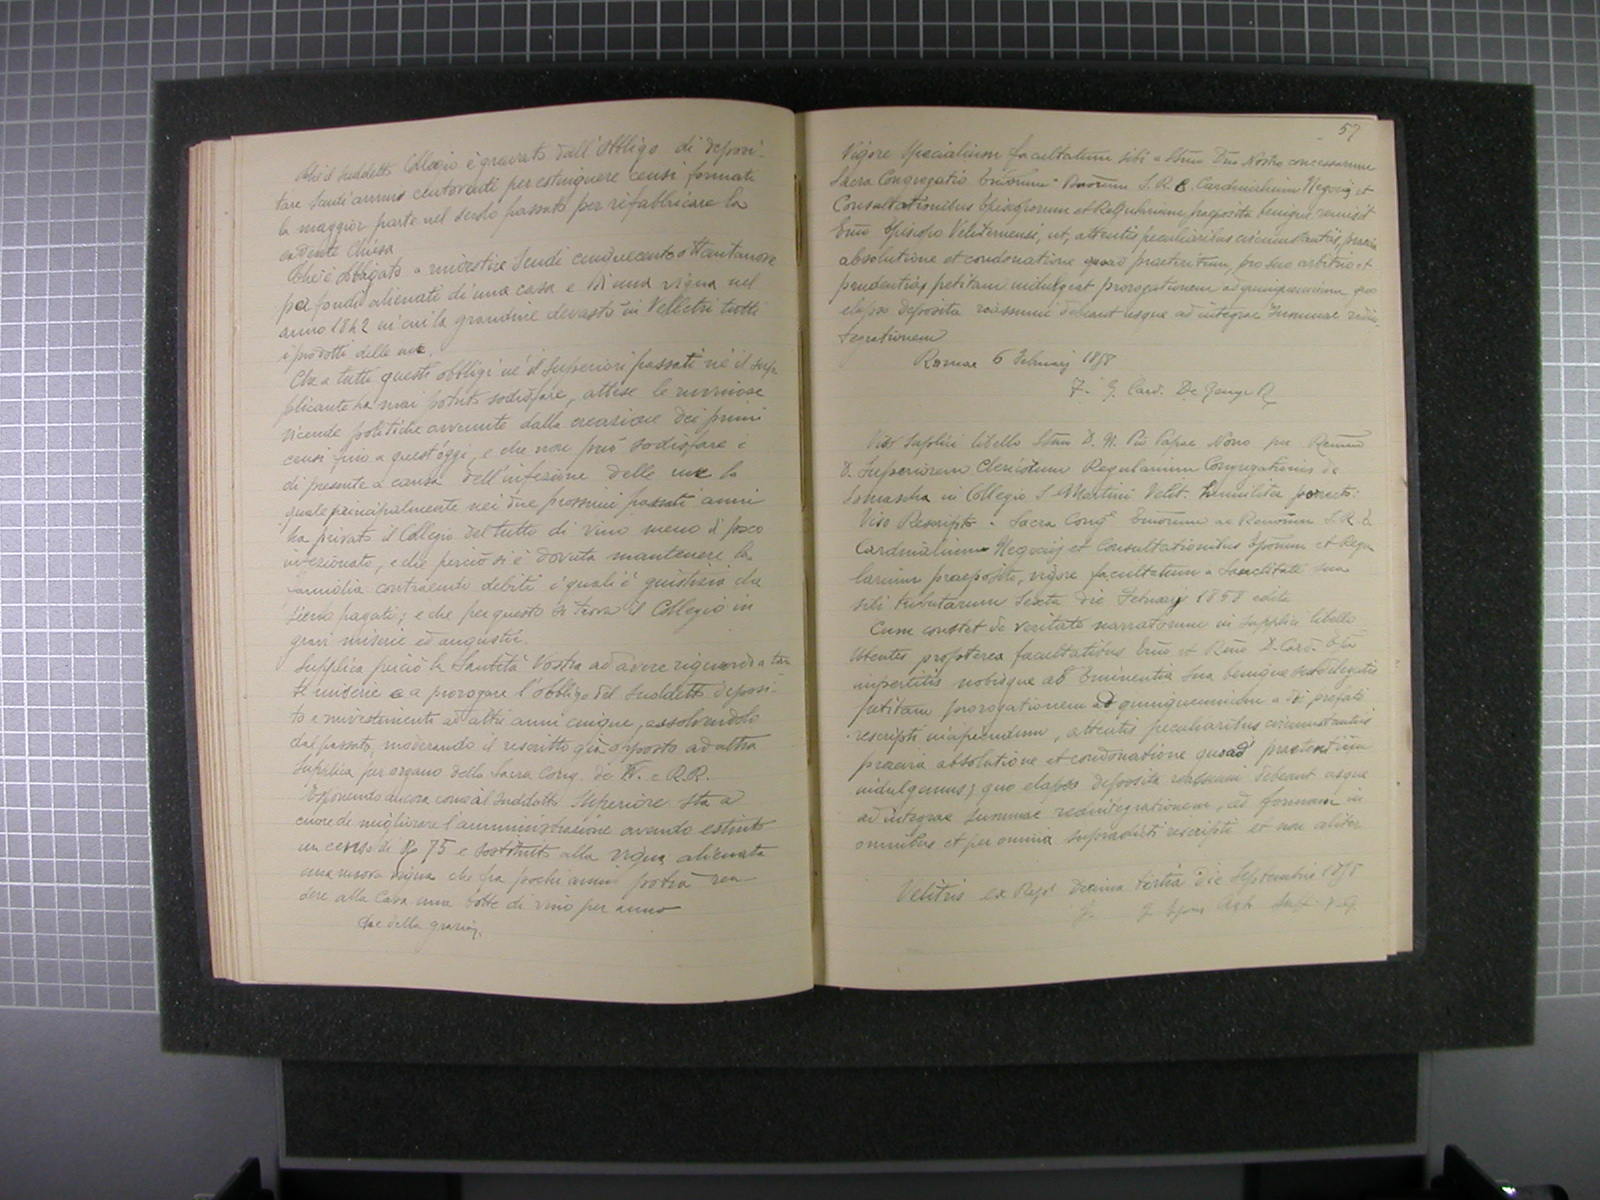 Che il suddetto Collegio è gravato dall'obbligo di deposi-
tare scudi annui centoventi per estinguere censi formati
la maggior parte nel secolo passato per rifabbricare la
cadente Chiesa
Che è obbligato a rinvestire scudi cinquecento ottantanove
per fondi alienati di una casa e di una vigna nel
anno 1842 in cui la grandine devastò in Velletri tutti
i prodotti delle uve.
Che a tutti questi obblighi nè il Superiori passati nè il sup-
plicante ha mai potuto sodisfare, attese le rovinose
vicende politiche avvenute dalla creazione dei primi
censi fino a quest'oggi, e che non può sodisfare i
di presente a causa dell'infezione delle uve la
quale principalmente nei due prossimi passati anni
ha privato il Collegio del tutto di vino meno il poco
infezionato, e che perciò si è dovuta mantenere la
famiglia contraendo debiti i quali è giustizia che
sieno pagati; e che per questo si trova il Collegio in
gravi miserie ed angustie.
Supplica perciò la Santità Vostra ad avere riguardo a tan
te miserie e a prorogare l'obbligo del suddetto deposi-
to e rinvestimento ad altri anni cinque, assolvendolo
dal passato, moderando il rescritto già apposto ad altra
supplica per organo della Sacra Cong. de VV. e RR.
Esponendo ancora come il suddetto Superiore sta a
cuore di migliorare l'amministrazione avendo estinto
un censo di 75 e sostituito alla vigna alienata
una nuova vigna che fra pochi anni potrà ren-
dere alla Casa una botte di vino per anno
Che della grazia,
57
Vigore specialium facultatum sibi a Ssmo Dno Nostro concessarum
Sacra Congregatio Emorum S. R. E. Cardinalium Negociis et
Consultationibus Episcoporum et Regularium praeposita benigne remisit
Emo Episcopo Veliternensi, ut, attentis peculiaribus circumstantiis, praevia
absolutione et condonatione quoad praeteritum, pro suo arbitrio et
prudentia, petitam indulgeat prorogationem ad quinquennium quo
elapso deposita reassumi debeant usque ad integrae summae redin-
tegrationem
Romae 6 Februarj 1858
F. G. Card. De Genga
Viso supplici libello Ssmo D. N. Pio Papae Nono per Rmum
D. Superiorem Clericorum Regularium Congregationis de
Somascha in Collegio S Martini Velit. humiliter porrecto:
Viso Rescripto Sacra Cong Emorum ac Rmorum S. R. E.
Cardinalium Negociis et Consultationibus Eporum et Regu
larium praeposita, vigore facultatum a Sanctitate sua
sibi tributarum sexta die Februarj 1858 edito
Cum constet de veritate narratorum in supplici libello
Utentes propterea facultatibus Emo et Rmo D. Card. Epo
impertitis nobisque ab Eminentia sua benigne subdelegatis
petitam prorogationem ad quinquennium a die prefati
rescripti incipiendum, attentis peculiaribus circumstantiis
praevia absolutione et condonatione quoad praeteritum
indulgemus; quo elapso deposita reassumi debeant usque
ad integrae summae redintegrationem, ad formam in
omnibus et per omnia supradicti rescripti et non aliter
Velitris ex decima tertia die Septembris 1858